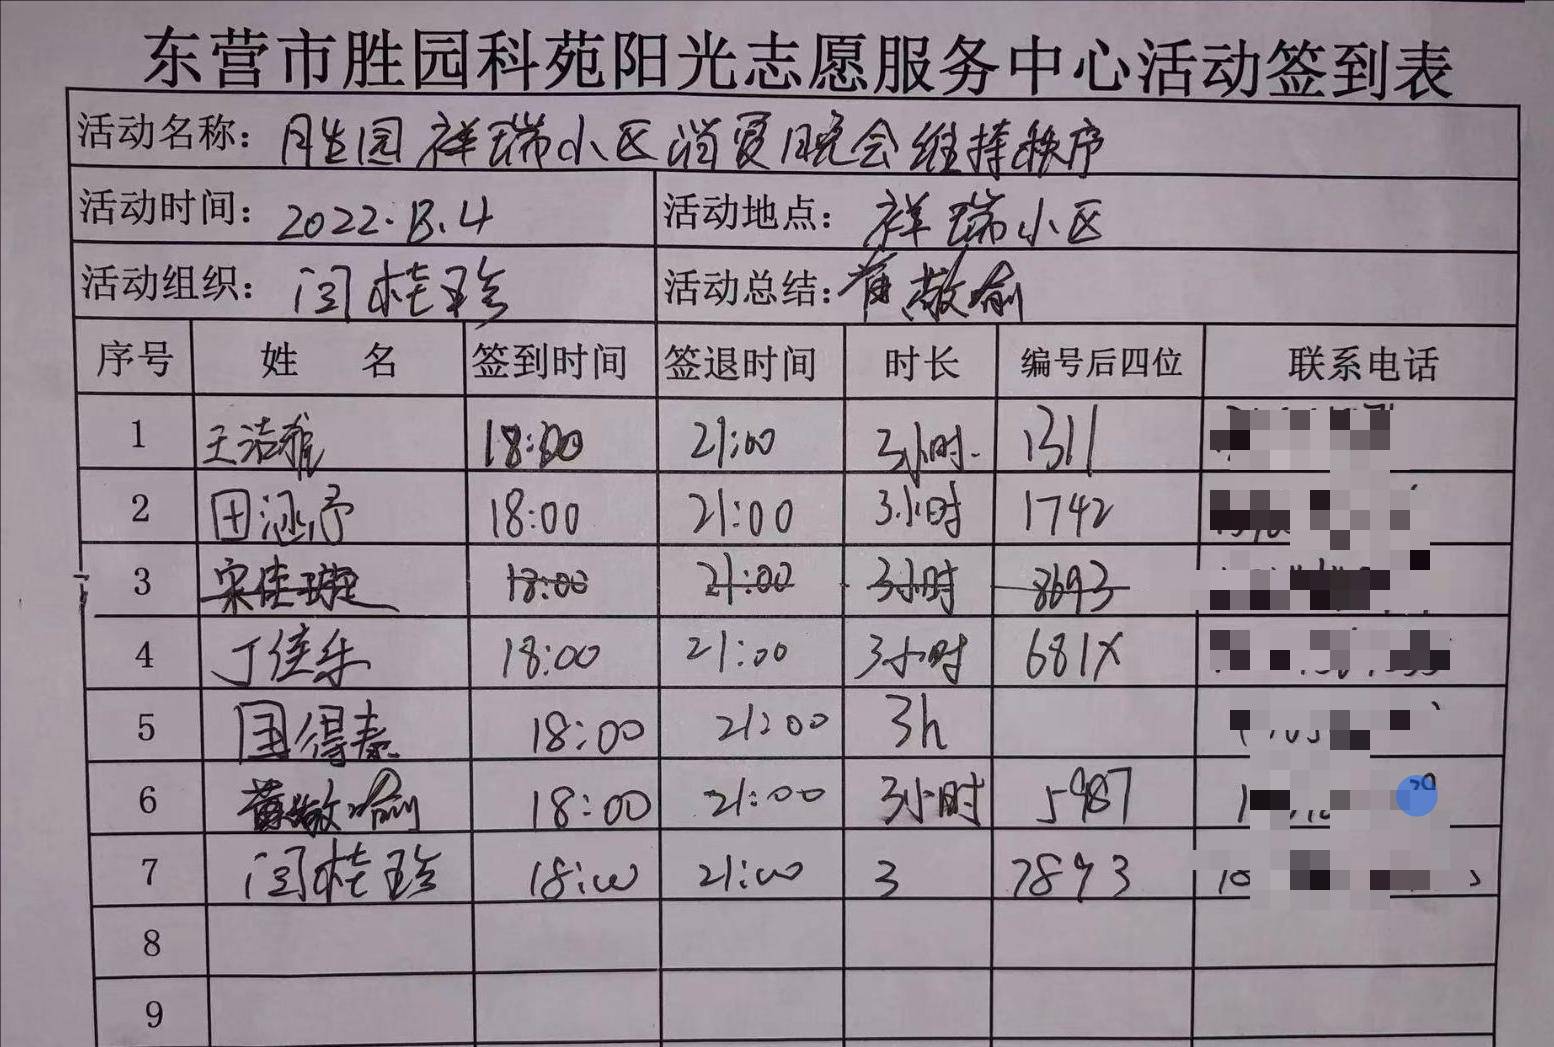 东营市胜园科苑阳光志愿服务中心活动签到表
活动名称: 胜园祥瑞小区消夏晚会维持秩序
活动时间: 2022.8.4 活动地点: 祥瑞小区
活动组织: 闫桂珍 活动总结: 黄敬喻
序号 姓 名 签到时间 签退时间 时长 编号后四位 联系电话
1 王洁雅 18:00 21:00 3小时. 1311
2 田涵予 18:00 21:00 3小时 1742
3 宋佳 18:00 21:00 3小时 8693
4 丁佳乐 18:00 21:00 3小时 681X
5 国得泰 18:00 21:00 3h
6 黄敬喻 18:00 21:00 3小时 5987
7 闫桂珍 18:00 21:00 3 7893
8
9